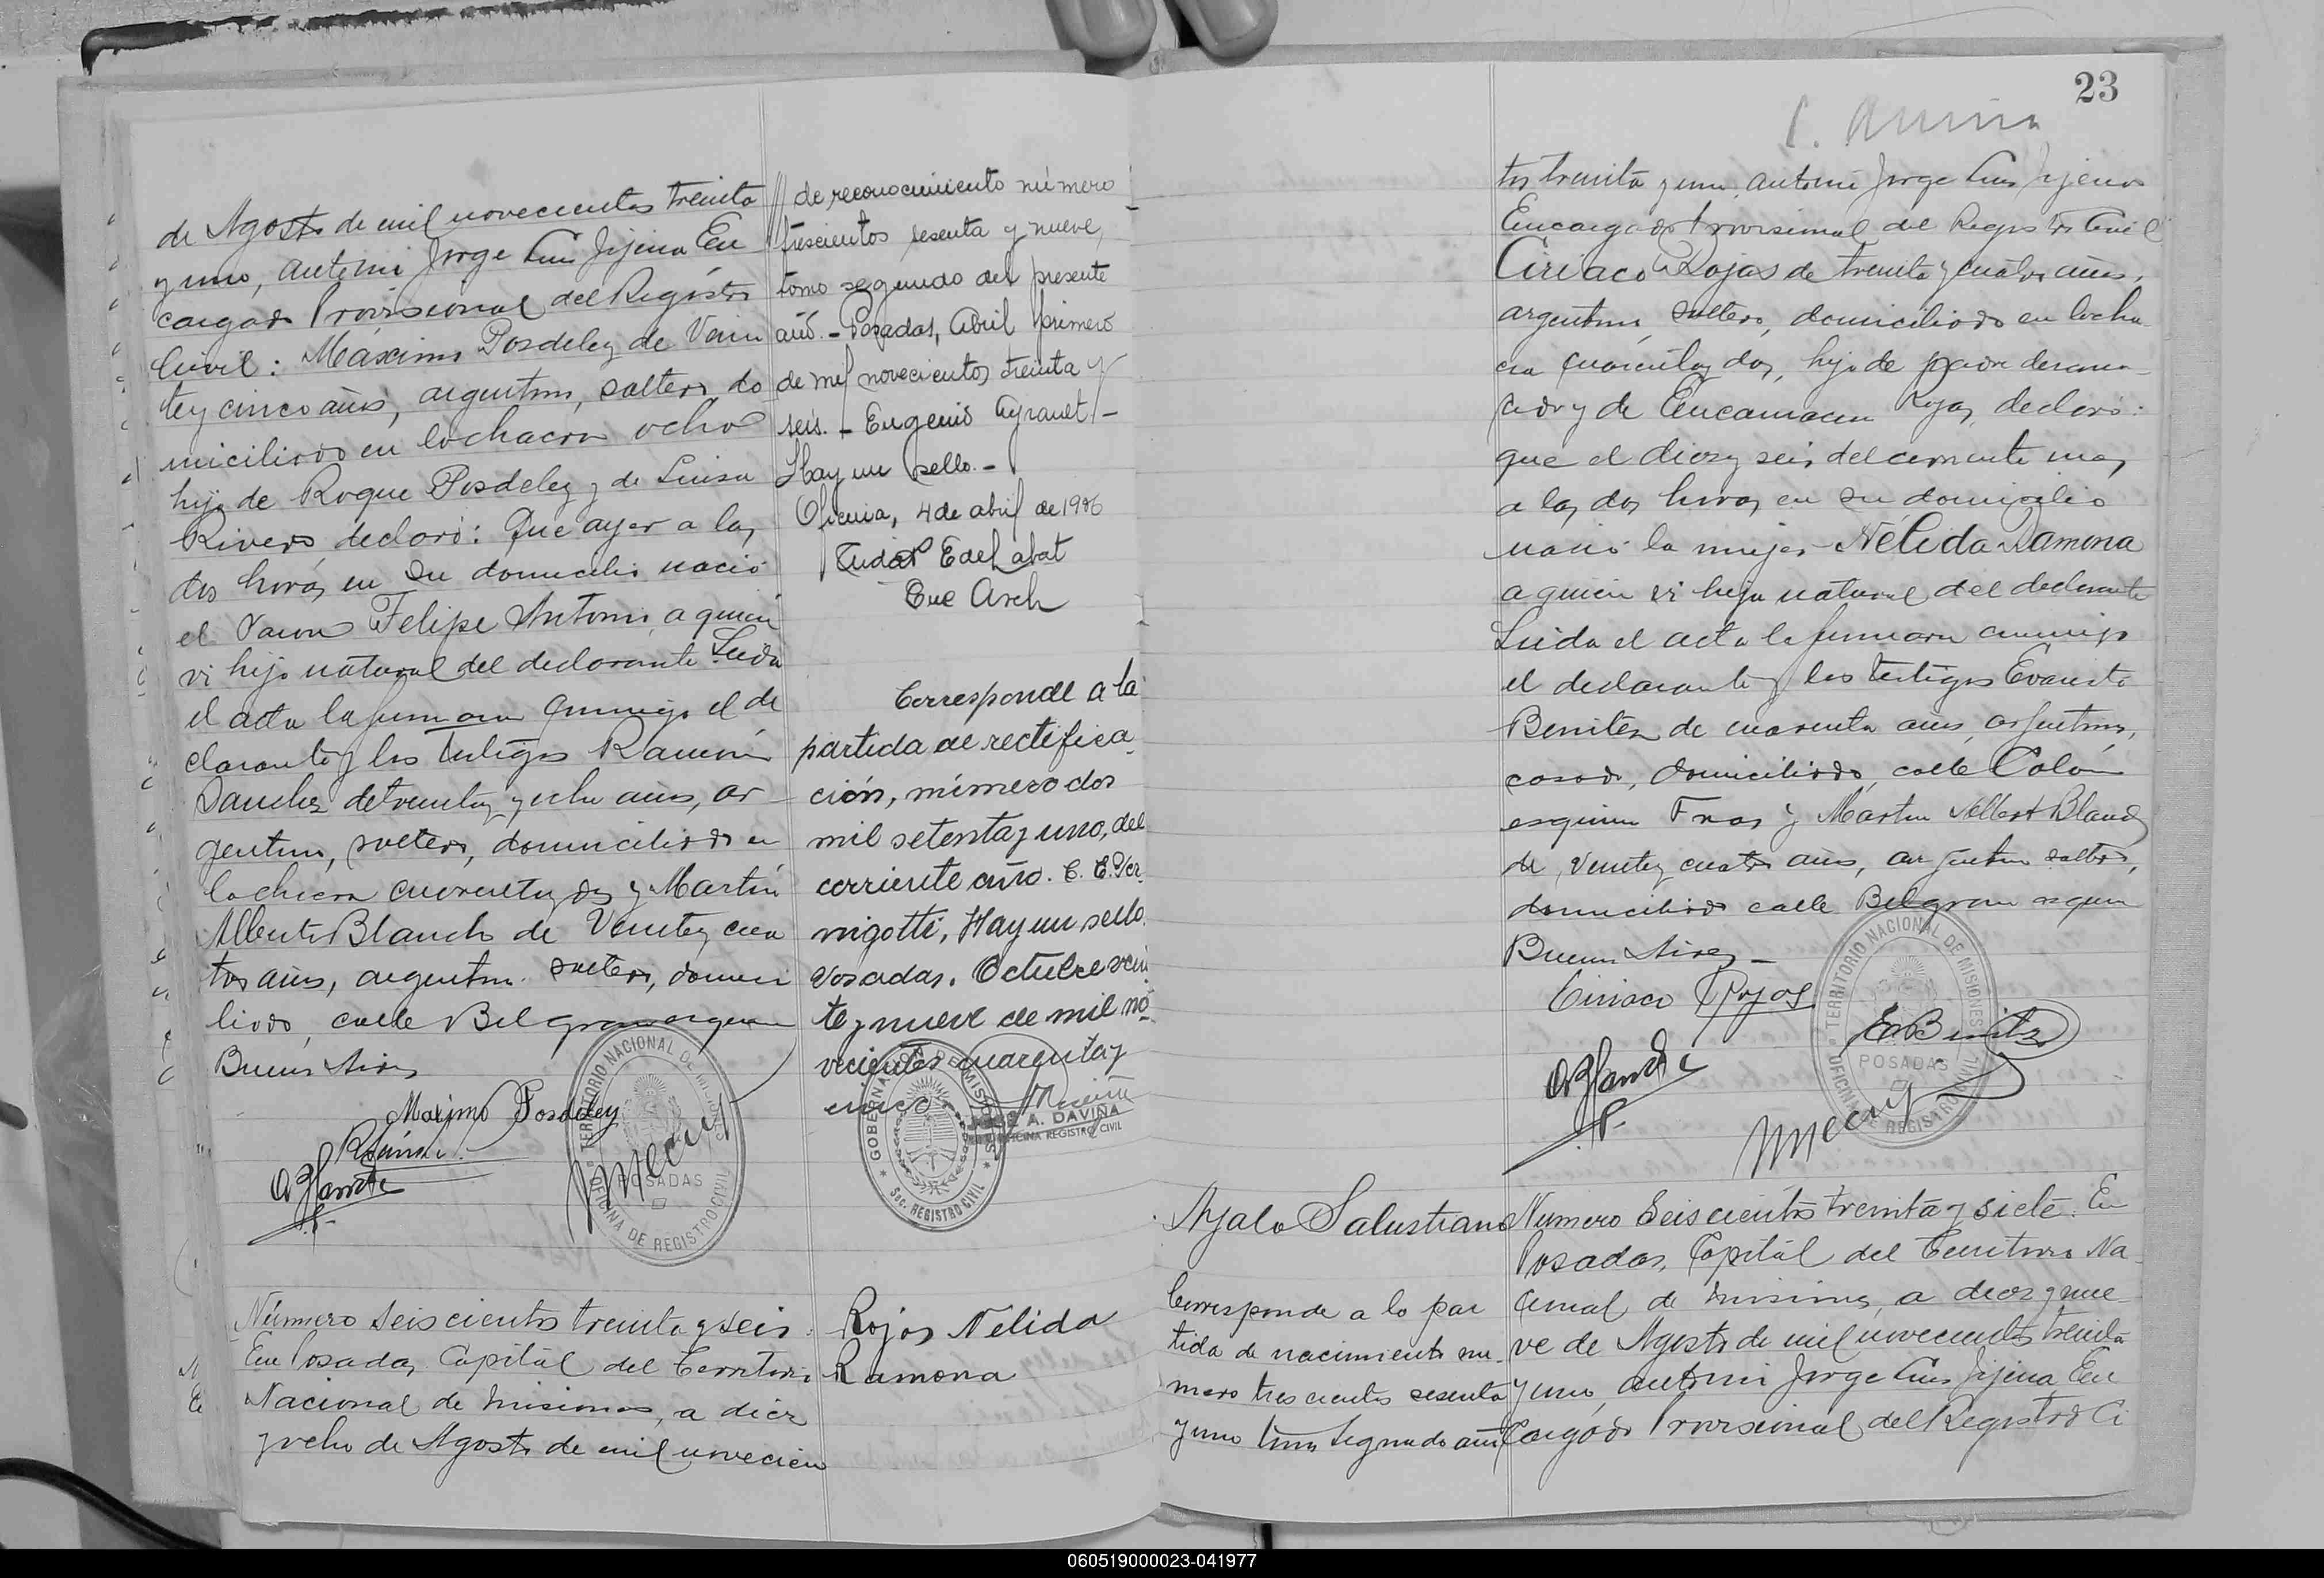 de Agosto de mil novecientos treinta
y uno, ante mi Jorge Luis Jijena En
cargado Provisional del Registro
Civil: Máximo Posdeley de Vein
tey cinco años, argentino, soltero, do
miciliado en la chacra ocho
hijo de Roque Posdeley y de Luisa
Rivero, declaró: Que ayer a las
dos horas, en su domicilio nació
el varon Felipe Antonio, a quien
vi hijo natural del declarante. Leida
el acta la firmaron conmigo el de
clarante y los testigos Ramón
Sanchez de treinta y ocho años, ar
gentino, soltero, domiciliado en
la chacra cuarenta y dos y Martín
Alberto Blanch de Veinte y cua
tro años, argentino, soltero, domici
liado, calle Belgrano esquina
Buenos Aires
Maximo Posdeley
TERRITORIO NACIONAL DE MISIONES
POSADAS
OFICINA DE REGISTRO CIVIL
Número seiscientos treinta y seis:
En Posadas, Capital del Territorio
Nacional de Misiones, a diez
y ocho de Agosto de mil novecien
// de reconocimiento número
trescientos sesenta y nueve,
tomo segundo del presente
año. - Posadas, Abril primero
de mil novecientos treinta y
seis. - Eugenio -
Hay un sello. -
Oficina, 4 de abril de 1936
Corresponde a la
partida de rectifica
ción, número dos
mil setenta y uno, del
corriente año. C. E. Ver
nigotti, Hay un sello.
Posadas, Octubre vein
te y nueve de mil no
vecientos cuarenta y
cinco
GOBERNACION DE MISIONES
Sec. REGISTRO CIVIL
JOSE A. DAVIÑA
OFICINA REGISTRO CIVIL
Rojas Nelida
Ramona
23
tos treinta y uno, ante mi Jorge Luis Jijena
Encargado Provisional del Registro Civil
Ciriaco Rojas de treinta y cuatro años,
argentino, soltero, domiciliado en la cha
cra cuarenta y dos, hijo de padre descono
cido y de Encarnacion Rojas, declaró:
que el diez y seis del corriente mes,
a las dos horas, en su domicilio
nació la mujer Nélida Ramona
a quien vi hija natural del declarante
Leida el acta la firmaron conmigo
el declarante y los testigos Evaristo
Benitez de cuarenta años, argentino,
casado, domiciliado, calle Colón
esquina Frias y Martin Albert Blanch
de Veinte y cuatro años, argentino soltero,
domiciliado calle Belgrano esquina
Buenos Aires -
Ciriaco Rojas
E Benitez
TERRITORIO NACIONAL DE MISIONES
POSADAS
OFICINA DE REGISTRO CIVIL
Ayala Salustiano
Corresponde a la par
tida de nacimiento nu-
mero trescientos sesenta
y uno tomo segundo año
Número Seiscientos treinta y siete. En
Posadas, Capital del Territorio Na
cional de Misiones, a diez y nue
ve de Agosto de mil novecientos treinta
y uno, ante mi Jorge Luis Jijena En
cargado Provisional del Registro Ci
060519000023-041977